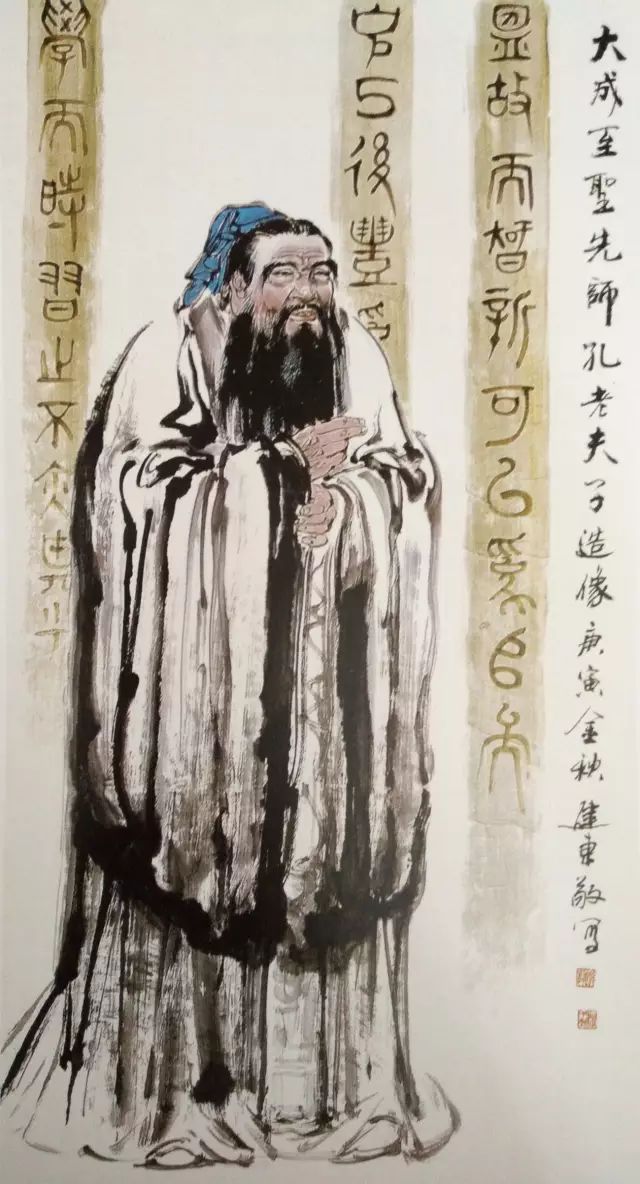 大成至聖先師孔老夫子造像庚寅金秋建東敬寫
昷故而智新可以爲師矣
克己復豊爲
學而時習之不亦說乎